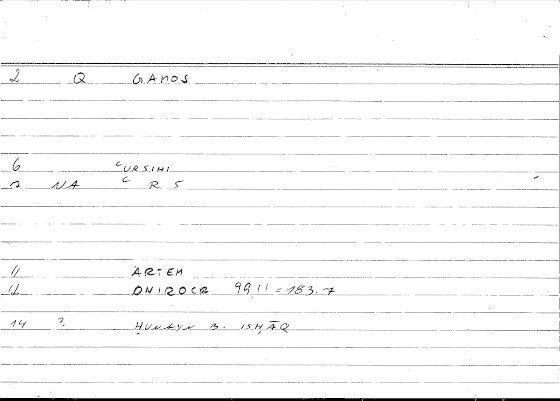 2 Q GAMOS
6 CURSIHI
7 NA C R S
11 ARTEM
12 ONIROCR 99.11 = 183.7
14 ? ḤUNAYN B. ISḤĀQ